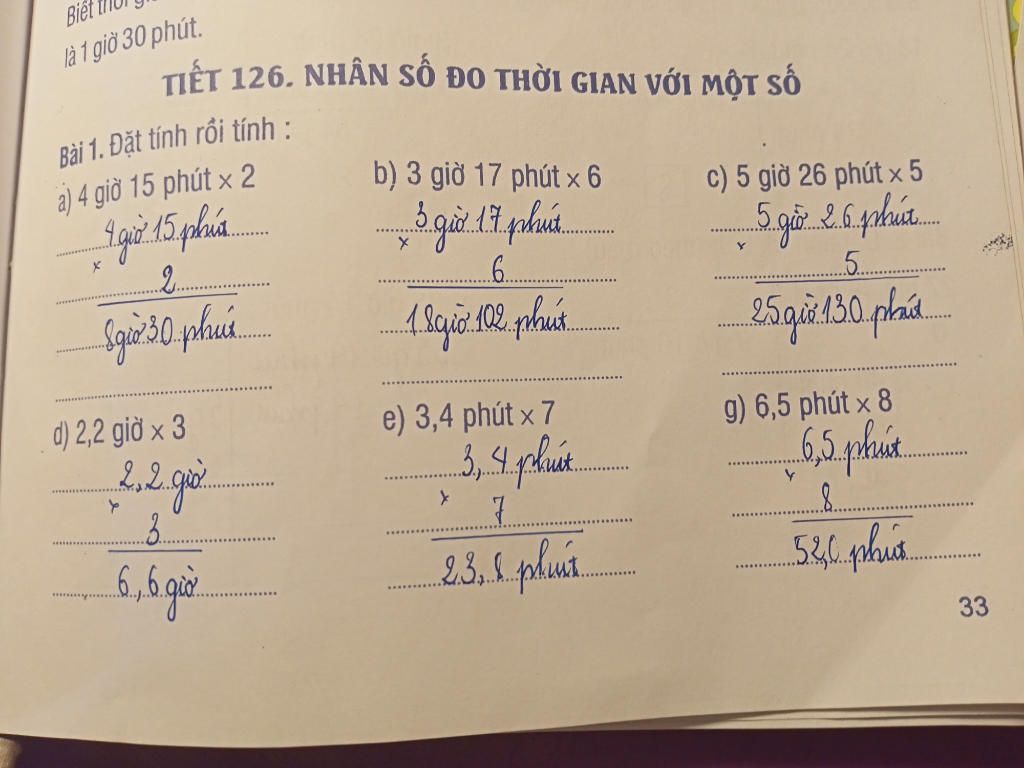 Biết thời gi
là 1 giờ 30 phút.
TIẾT 126. NHÂN SỐ ĐO THỜI GIAN VỚI MỘT SỐ
Bài 1. Đặt tính rồi tính :
a) 4 giờ 15 phút × 2
4 giờ 15 phút
×
2
8 giờ 30 phút
b) 3 giờ 17 phút × 6
3 giờ 17 phút
×
6
18 giờ 102 phút
c) 5 giờ 26 phút × 5
5 giờ 26 phút
×
5
25 giờ 130 phút
d) 2,2 giờ × 3
2,2 giờ
×
3
6,6 giờ
e) 3,4 phút × 7
3,4 phút
×
7
23,8 phút
g) 6,5 phút × 8
6,5 phút
×
8
52,0 phút
33